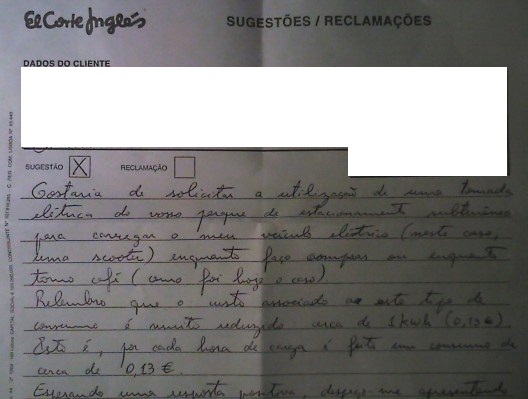 El Corte Inglés
SUGESTÕES / RECLAMAÇÕES
DADOS DO CLIENTE
SUGESTÃO X RECLAMAÇÃO
Gostaria de solicitar a utilização de uma tomada
elétrica do vosso parque de estacionamento subterrâneo
para carregar o meu veículo eléctrico (neste caso,
uma scooter) enquanto faço compras ou enquanto
tomo café (como foi hoje o caso)
Relembro que o custo associado ao este tipo de
consumo é muito reduzido: cerca de 1kwh (0,13€)
Esto é, por cada hora de carga é feito um consumo de
cerca de 0,13 €.
Esperando uma resposta positiva, despeço-me apresentando